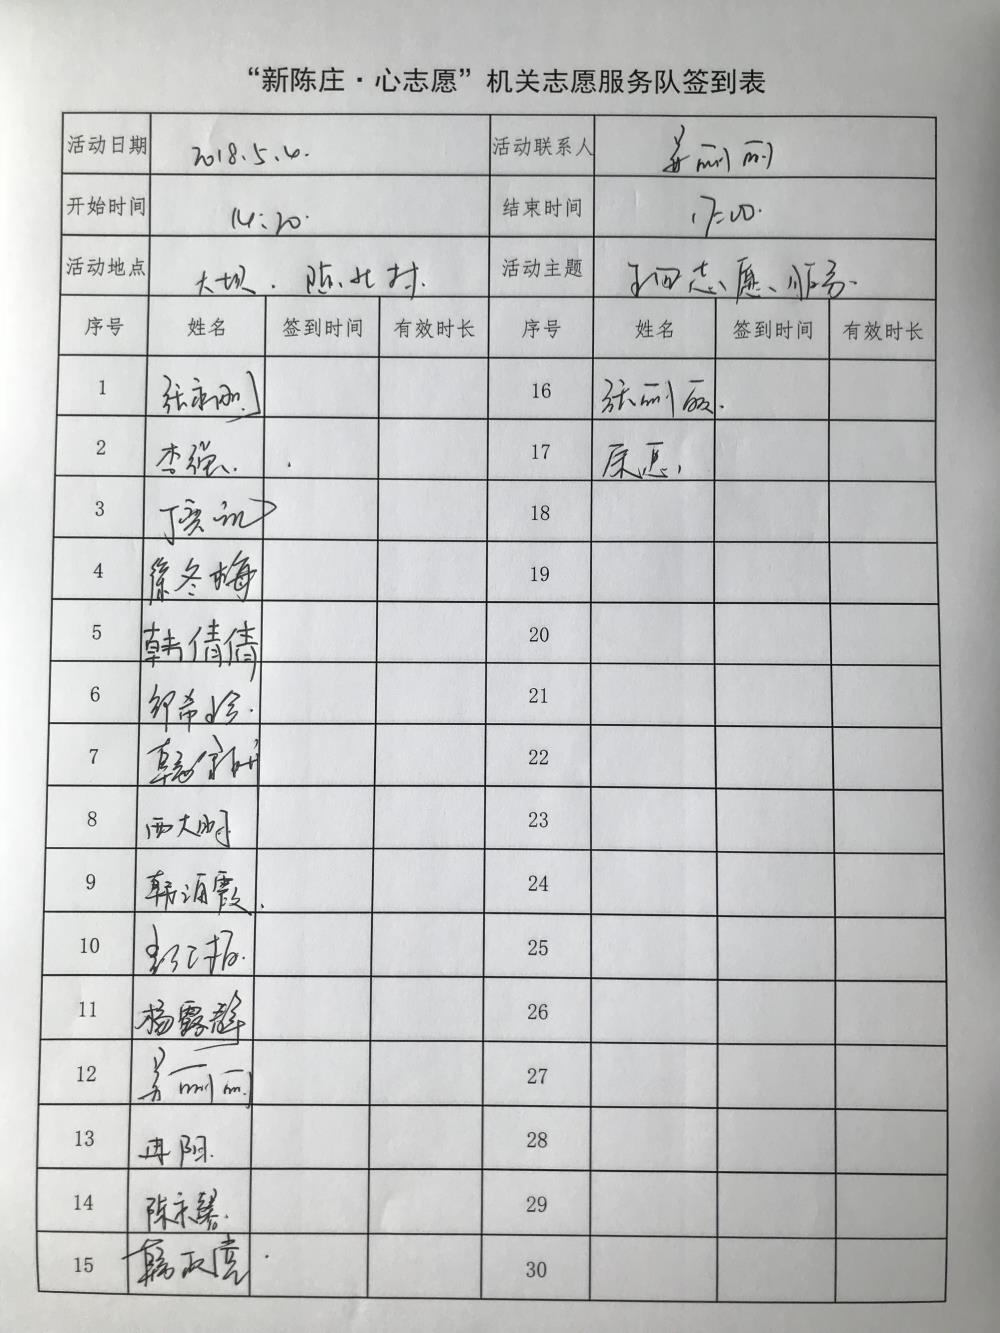 “新陈庄·心志愿”机关志愿服务队签到表
活动日期 2018.5.4. 活动联系人 姜丽丽
开始时间 14:20. 结束时间 17:00.
活动地点 大坝、陈北村. 活动主题 志愿服务.
序号 姓名 签到时间 有效时长 序号 姓名 签到时间 有效时长
1 16 张丽
2 李强 17
3 丁 18
4 徐冬梅 19
5 韩倩倩 20
6 21
7 22
8 西大明 23
9 韩 霞 24
10 25
11 杨露静 26
12 姜丽丽 27
13 冉阳 28
14 陈永馨 29
15 韩 亮 30